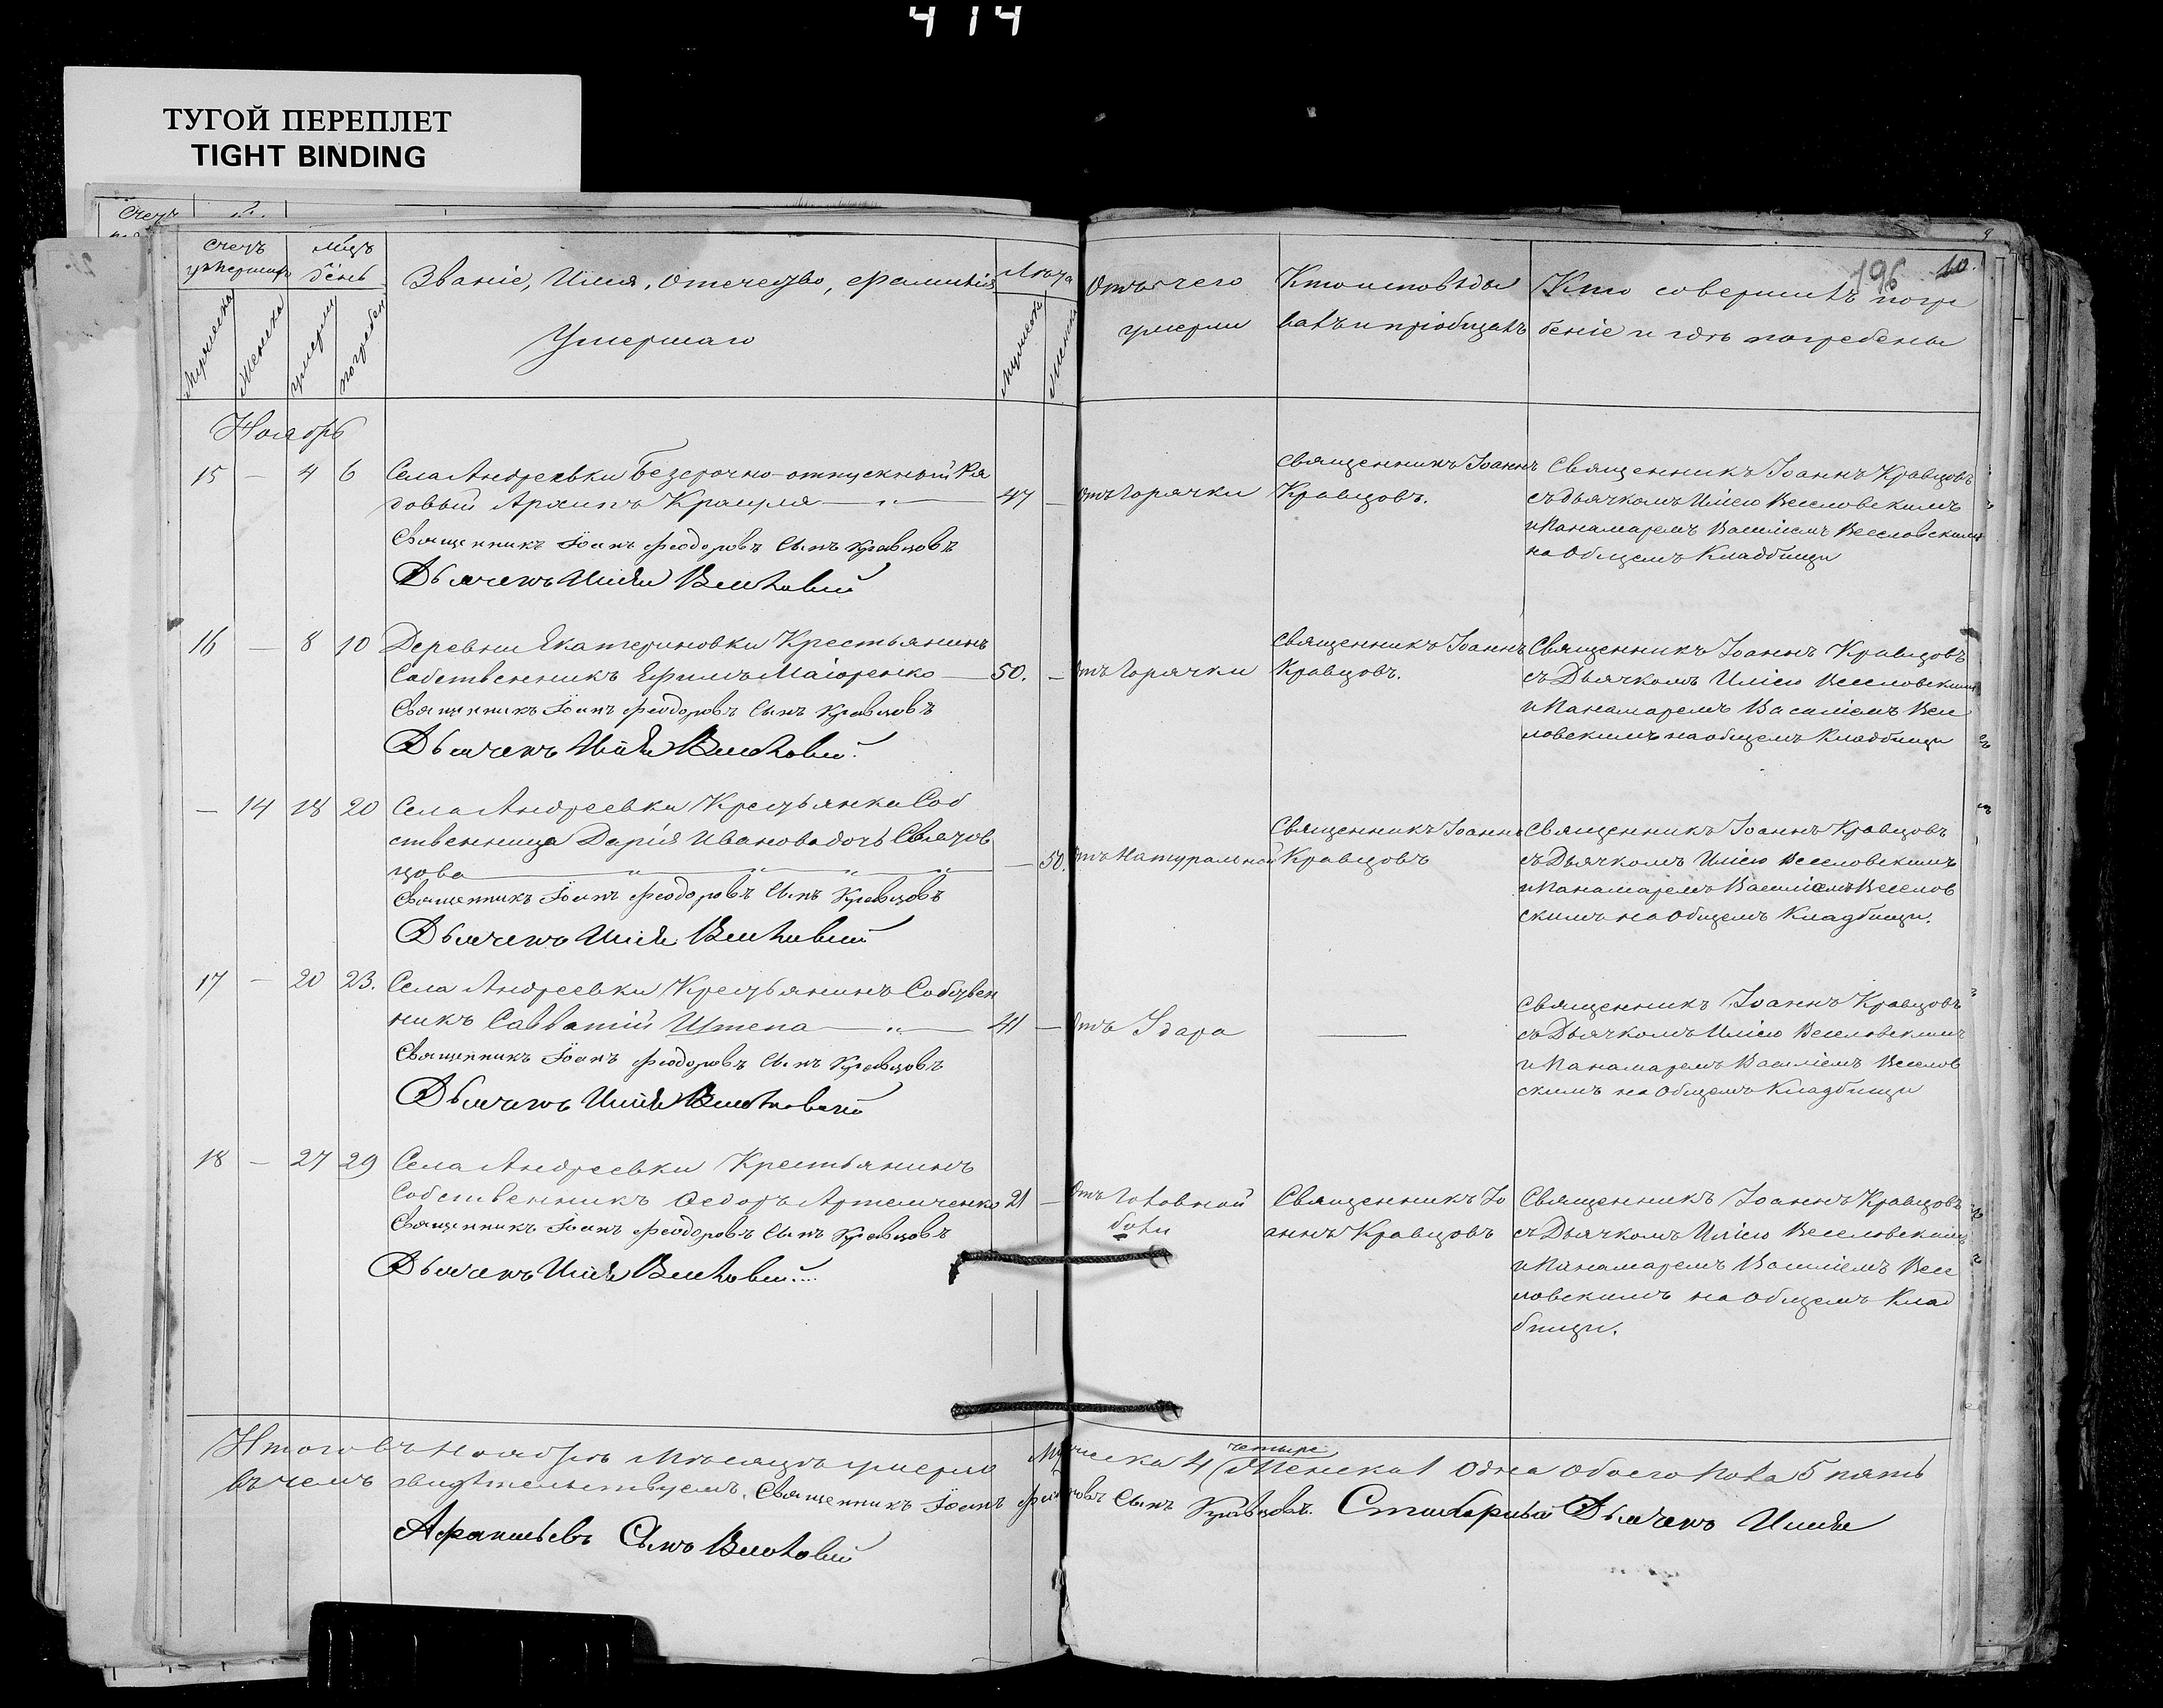 414
ТУГОЙ ПЕРЕПЛЕТ
TIGHT BINDING
Счетъ
Счетъ умершихъ
Мцъ день
Званіе, Имя, Отечество, Фамилія
Умершаго
Лѣта
Мужеска
Женска
умерли
погребен
Мужеска
Женска
Отъ чего
умерли
Кто исповѣды
валъ и пріобщалъ
Кто совершилъ погре
беніе и гдѣ погребены
196
10.
Ноябрь
15 — 4 6 Села Андреевки Безсрочно-отпускный Ря
довый Архипъ 47 — отъ Горячки
Священникъ Іоаннъ Феодоровъ Сынъ Кравцовъ
Дьячекъ Илія Веселовскій
Священникъ Іоаннъ
Кравцовъ.
Священникъ Іоаннъ Кравцовъ
съ дьячкомъ Иліею Веселовскимъ
и Панамаремъ Василіемъ Веселовскимъ
на Общемъ Кладбищи
16 — 8 10 Деревни Екатериновки Крестьянинъ
Собственникъ Ефимъ Маіоренко 50. — отъ Горячки
Священникъ Іоаннъ Феодоровъ Сынъ Кравцовъ
Дьячекъ Илія Веселовскій.
Священникъ Іоаннъ
Кравцовъ.
Священникъ Іоаннъ Кравцовъ
съ Дьячкомъ Иліею Веселовскимъ
и Панамаремъ Василіемъ Весе
ловскимъ на общемъ Кладбищи
— 14 18 20 Села Андреевки Крестьянка Соб
ственница Дарія Иванова дочь
цова — 50. отъ Натуральной
Священникъ Іоаннъ Феодоровъ Сынъ Кравцовъ
Дьячекъ Илія Веселовскій
Священникъ Іоаннъ
Кравцовъ
Священникъ Іоаннъ Кравцовъ
съ Дьячкомъ Иліею Веселовскимъ
и Панамаремъ Василіемъ Веселов
скимъ на Общемъ Кладбищи.
17 — 20 23. Села Андреевки Крестьянинъ Собствен
никъ Савватій Штепа 41 — отъ Удара —
Священникъ Іоаннъ Феодоровъ Сынъ Кравцовъ
Дьячекъ Илія Веселовскій
Священникъ Іоаннъ Кравцовъ
съ Дьячкомъ Иліею Веселовскимъ
и Панамаремъ Василіемъ Веселов
скимъ на Общемъ Кладбищи
18 — 27 29 Села Андреевки Крестьянинъ
Собственникъ Ѳедоръ Артемченко 21 — отъ Головной
боли
Священникъ Іоаннъ Феодоровъ Сынъ Кравцовъ
Дьячекъ Илія Веселовскій....
Священникъ Іо
аннъ Кравцовъ
Священникъ Іоаннъ Кравцовъ
съ Дьячкомъ Иліею Веселовскимъ
и Панамаремъ Василіемъ Весе
ловскимъ на Общемъ Клад
бищи.
Итого въ Ноябрѣ Мѣсяцѣ умерло Мужеска 4 четыре Женска 1 Одна Обоего Пола 5 пять
въ чемъ свидѣтельствуемъ. Священникъ Іоаннъ Феодоровъ Сынъ Кравцовъ. Дьячекъ Илія
Афанасьевъ Сынъ Веселовскій